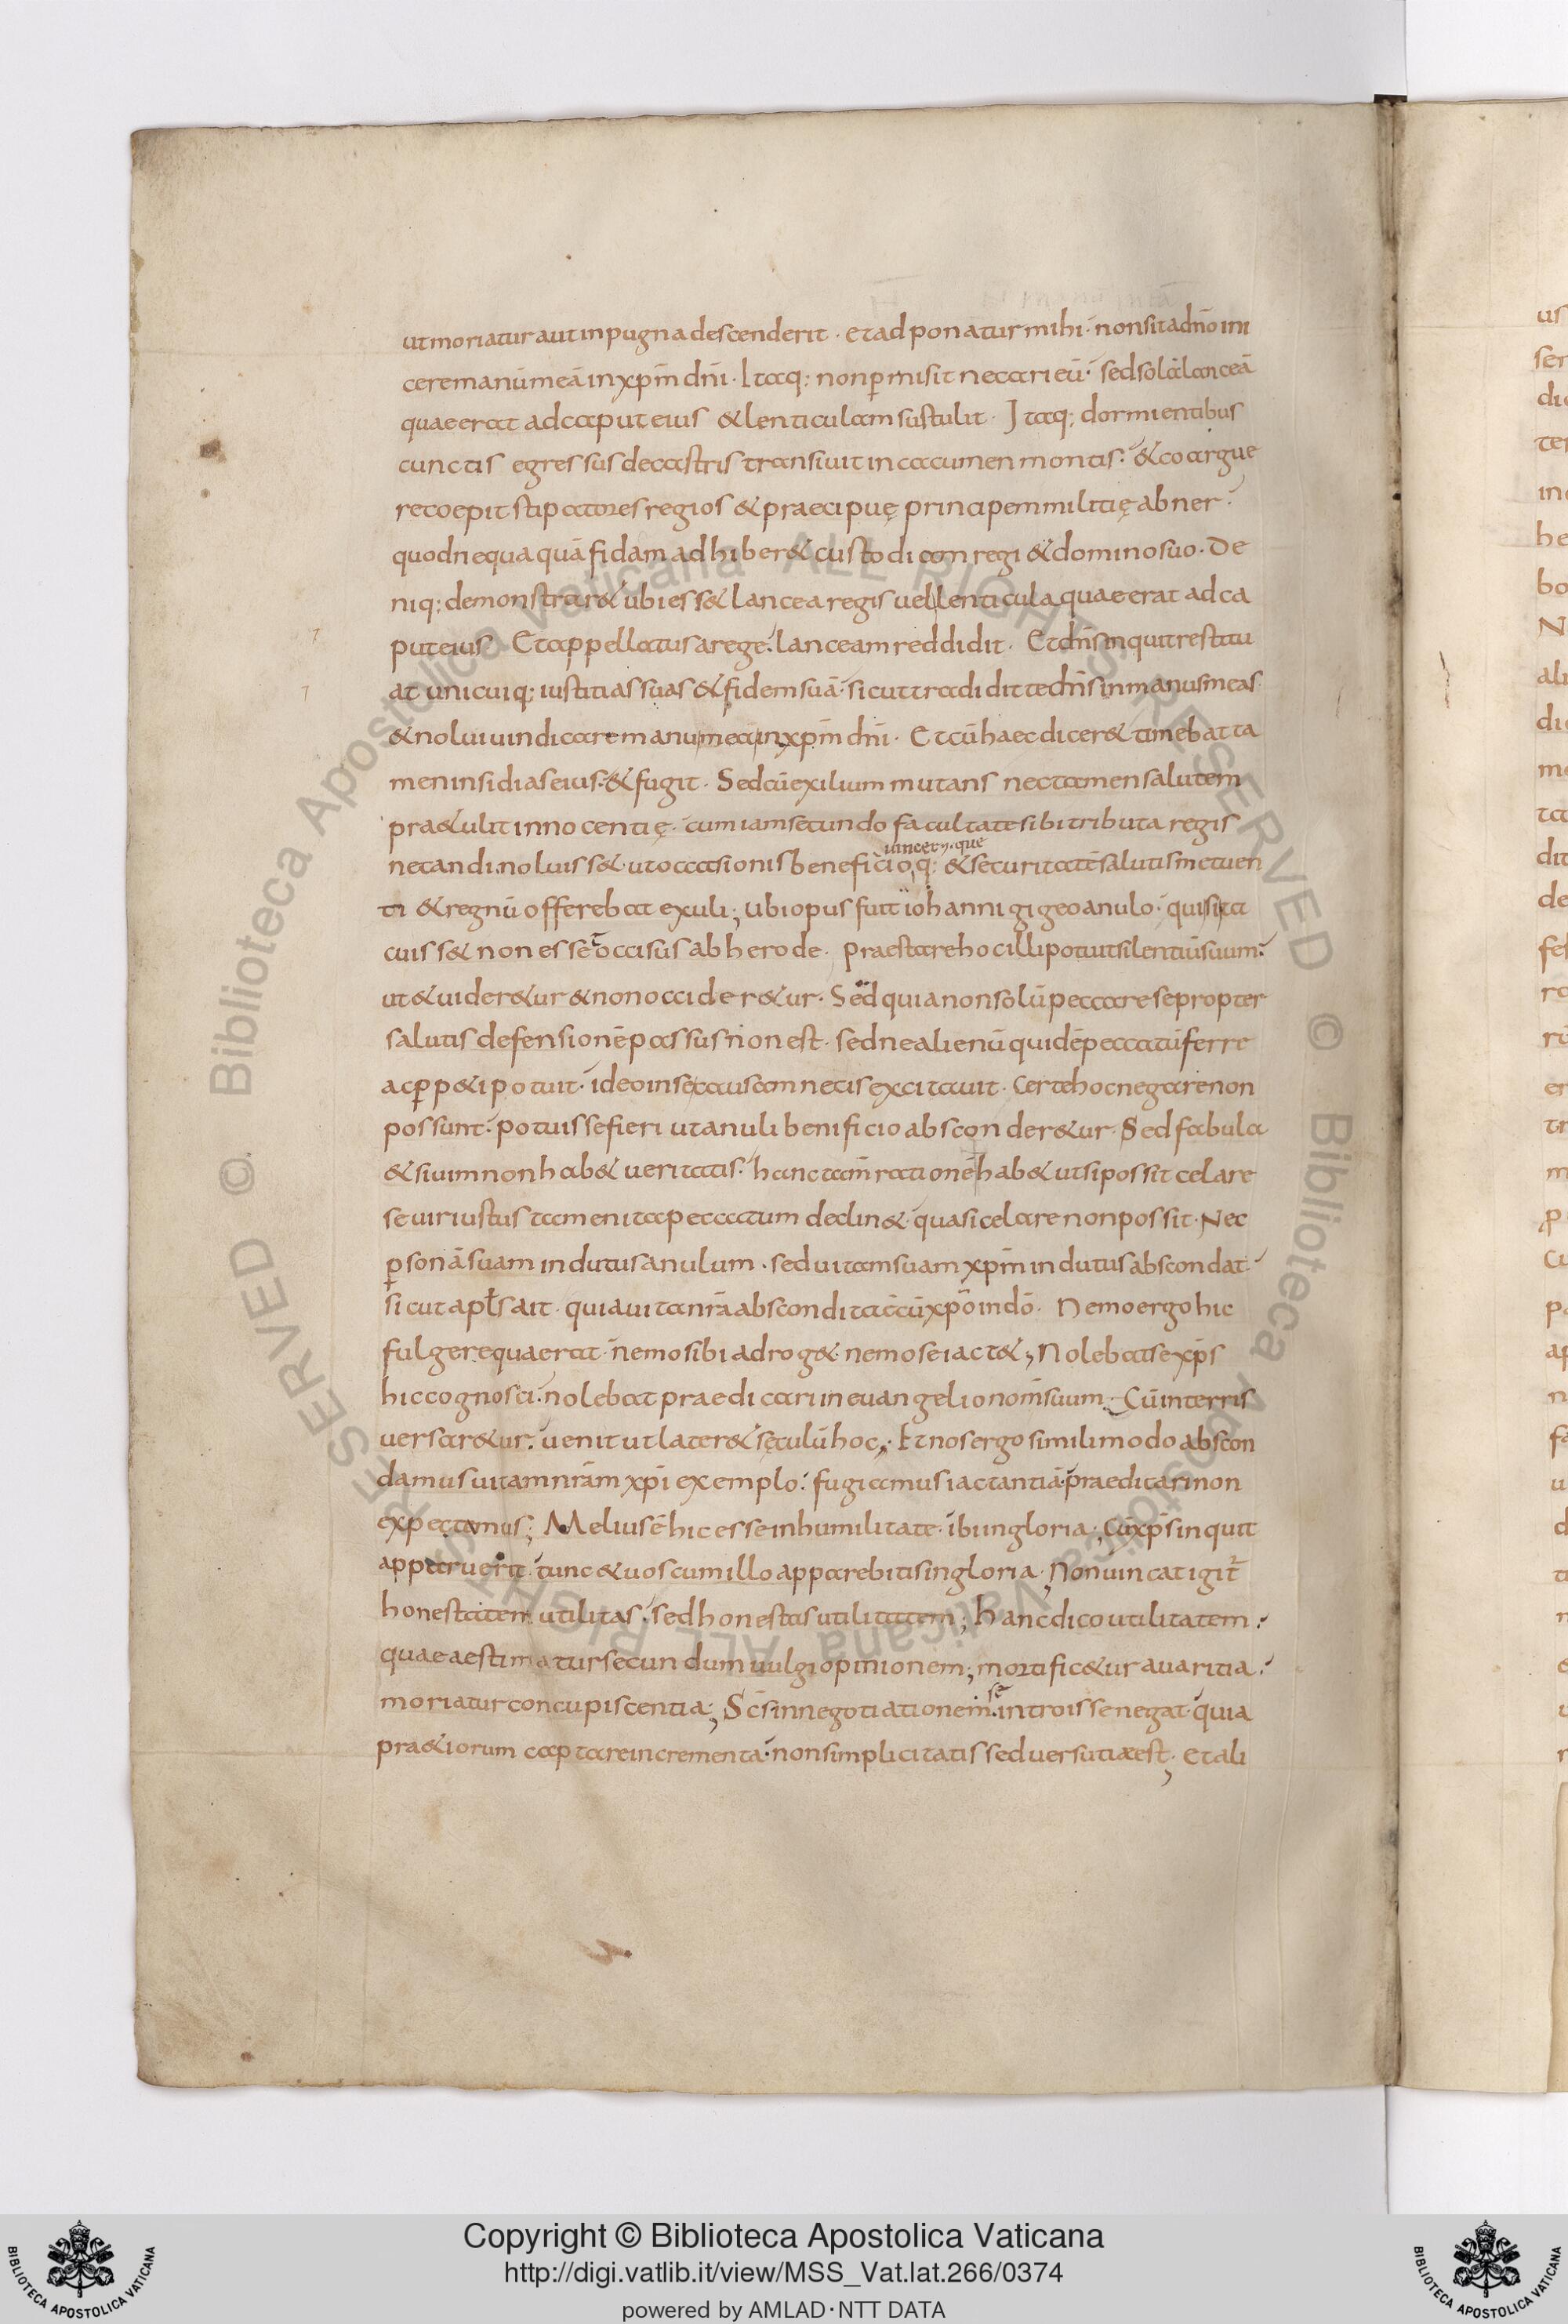 ut moriatur aut in pugna descenderit · et adponatur mihi · non sit a dn̄o ini
cere manū meā in xp̄m dn̄i · Itaq; non ꝑmisit necari eū · sed solā lanceā
quae erat ad caput eius & lenticulam sustulit · Itaq; dormientibus
cunctis egressus de castris transiuit in cacumen montis · & coargue
re coepit stipatores regios & praecipuę principem militię abner ·
quod nequaquā fidam adhiber& custodiam regi & domino suo · De
niq; demonstrar& ubi ess& lancea regis uel lenticula quae erat ad ca
put eius · Et appellatus a rege · lanceam reddidit · Et dn̄s inquit restitu
at unicuiq; iustitias suas & fidem suā · sicut tradidit te dn̄s in manus meas
& nolui uindicare manu mea in xp̄m dn̄i · Et cū haec dicer& timebat ta
men insidias eius · & fugit · Sed cū exilium mutans nec tamen salutem
pra&ulit innocentię · cum iam secundo facultate sibi tributa regis
necandi · noluiss& · ut occasionis beneficio q; & securitatē salutis metuen
ti & regnū offerebat exuli ; Ubi opus fuit iohanni gigeo anulo · qui si ta
cuiss& non esset occisus ab herode · Praestare hoc illi potuit silentiū suum ·
ut & uider&ur & non occider&ur · Sed quia non solū peccare se propter
salutis defensionē passus non est · sed ne alienū quidē peccatū ferre
ac ꝑp&i potuit · ideo in se causam necis excitauit · Certe hoc negare non
possunt · potuisse fieri ut anuli benificio absconder&ur · Sed fabula
& si uim non hab& ueritatis · hanc tam̄ rationē hab& ut si possit celare
se uir iustus tamen ita peccatum declin& · quasi celare non possit · Nec
ꝑsonā suam indutus anulum · sed uitam suam xp̄m indutus abscondat ·
sicut apl̄s ait · quia uita nr̄a abscondita ē cū xp̄o in dō · Nemo ergo hic
fulgere quaerat · nemo sibi adrog& · nemo se iact& ; Nolebat se xp̄s
hic cognosci · nolebat praedicari in euangelio nom̄ suum · Cū in terris
uersar&ur · uenit ut later& sęculū hoc · Et nos ergo simili modo abscon
damus uitam nr̄am xp̄i exemplo · fugiamus iactantiā · praedicari non
expectemus ; Melius ē hic esse in humilitate · ibi in gloria ; Cū xp̄s inquit
apparuerit · tunc & uos cum illo apparebitis in gloria ; Non uincat igit̄
honestatem utilitas · sed honestas utilitatem ; Hanc dico utilitatem ·
quae aestimatur secundum uulgi opinionem ; mortific&ur auaritia ·
moriatur concupiscentia ; Sc̄s in negotiationem se introisse negat · quia
pra&iorum captare incrementa · non simplicitatis sed uersutiae est ; Et ali
Copyright © Biblioteca Apostolica Vaticana
http://digi.vatlib.it/view/MSS_Vat.lat.266/0374
powered by AMLAD·NTT DATA